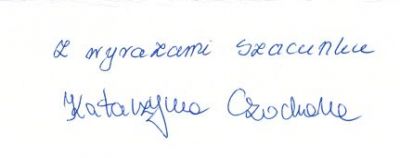 z wyrazami szacunku
Katarzyna Czochara